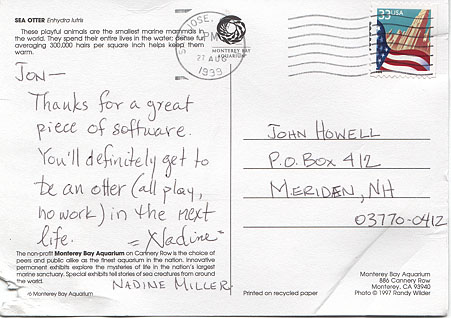 SEA OTTER Enhydra lutris
These playful animals are the smallest marine mammals in
the world. They spend their entire lives in the water; dense fur
averaging 300,000 hairs per square inch helps keep them
warm.
JOSE,
PM
27 AUG
1999
MONTEREY BAY
AQUARIUM
33USA
Jon—
Thanks for a great
piece of software.
You'll definitely get to
be an otter (all play,
no work) in the next
life.
= Nadine
JOHN HOWELL
P.O. BOX 412
MERIDEN, NH
03770-0412
The non-profit Monterey Bay Aquarium on Cannery Row is the choice of
peers and public alike as the finest aquarium in the nation. Innovative
permanent exhibits explore the mysteries of life in the nation's largest
marine sanctuary. Special exhibits tell stories of sea creatures from around
the world.
NADINE MILLER
© Monterey Bay Aquarium
Printed on recycled paper
Monterey Bay Aquarium
886 Cannery Row
Monterey, CA 93940
Photo © 1997 Randy Wilder